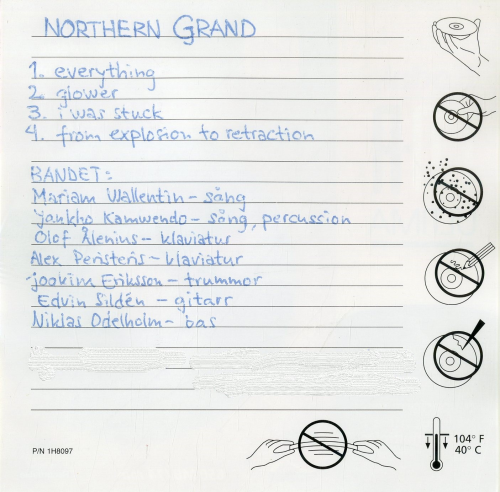 NORTHERN GRAND
1. everything
2. glower
3. i was stuck
4. from explosion to retraction
BANDET:
Mariam Wallentin - sång
jankho Kamwendo - sång, percussion
Olof Ålenius - klaviatur
Alex - klaviatur
joakim Eriksson - trummor
Edvin Sildén - gitarr
Niklas Odelholm - bas
104° F
40° C
P/N 1H8097